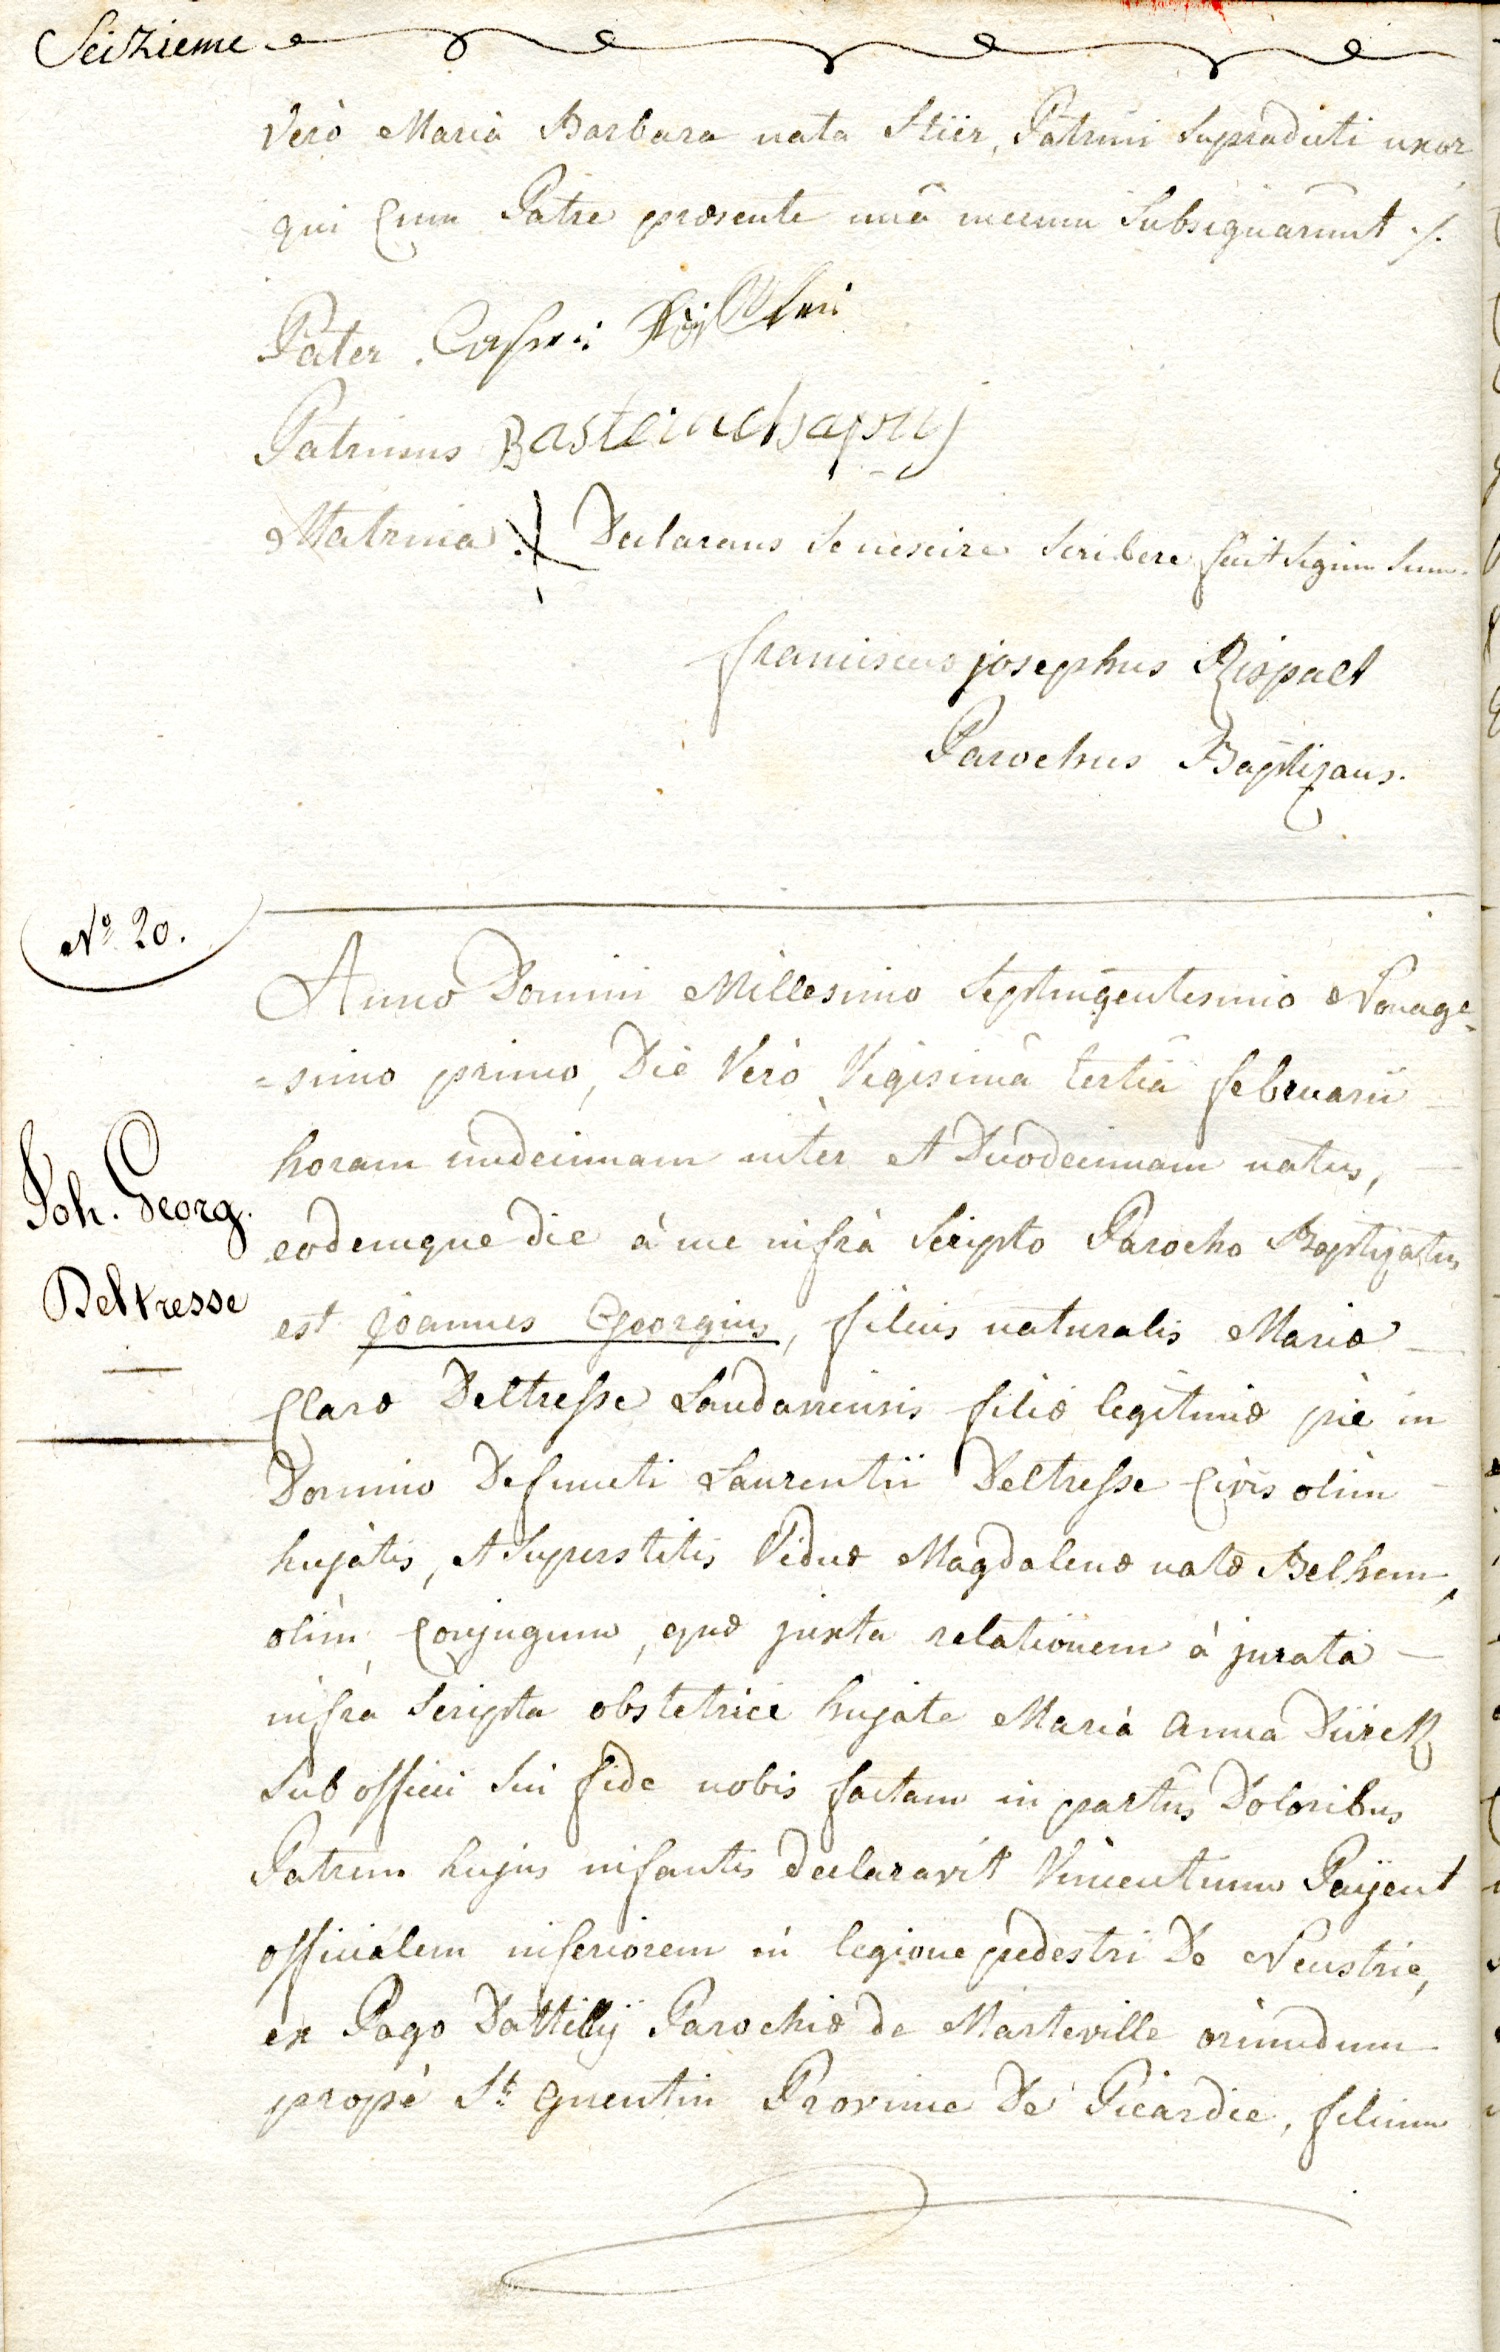 Seizieme
Verò Mariâ Barbara nata Stiir, Patrini Supradicti uxor
qui Cum Patre præsente unâ mecum Subsignarunt ./.
Pater.
Patrinus Bastein chapuy
Matrina Declarans Se nescire Scribere fecit Signum Suum.
franciscus josephus Rispalt
Parochus Baptizans.
N° 20.
Anno Domini Millesimo Septingentesimo Nonage-
=simo primo, Die Verò Vigesimâ tertiâ februarii
horam undecimam inter et Duodecimam natus,
Joh. Georg.
eodemque die à me infrà Scripto Parocho Baptizatus
Deltresse
est joannes Georgius, filius naturalis Mariæ
Claræ Deltresse Landaviensis filiæ legitimæ piè in
Domino Defuncti Laurentii Deltresse Civis olim
hujatis, et Superstitis Viduæ Magdalenæ natæ Belhem,
olim Conjugum, quæ juxta relationem à jurata
infrà Scripta obstetrice hujate Mariâ Anna Dürck
Sub officii Sui fide nobis factam in partûs Doloribus
Patrem hujus infantis declaravit Vincentium Payent
officialem inferiorem in legione pedestri De Neustrie,
ex Pago Dattilly Parochiæ de Marteville oriundum
propè St. Quentin Province De Picardie, filium